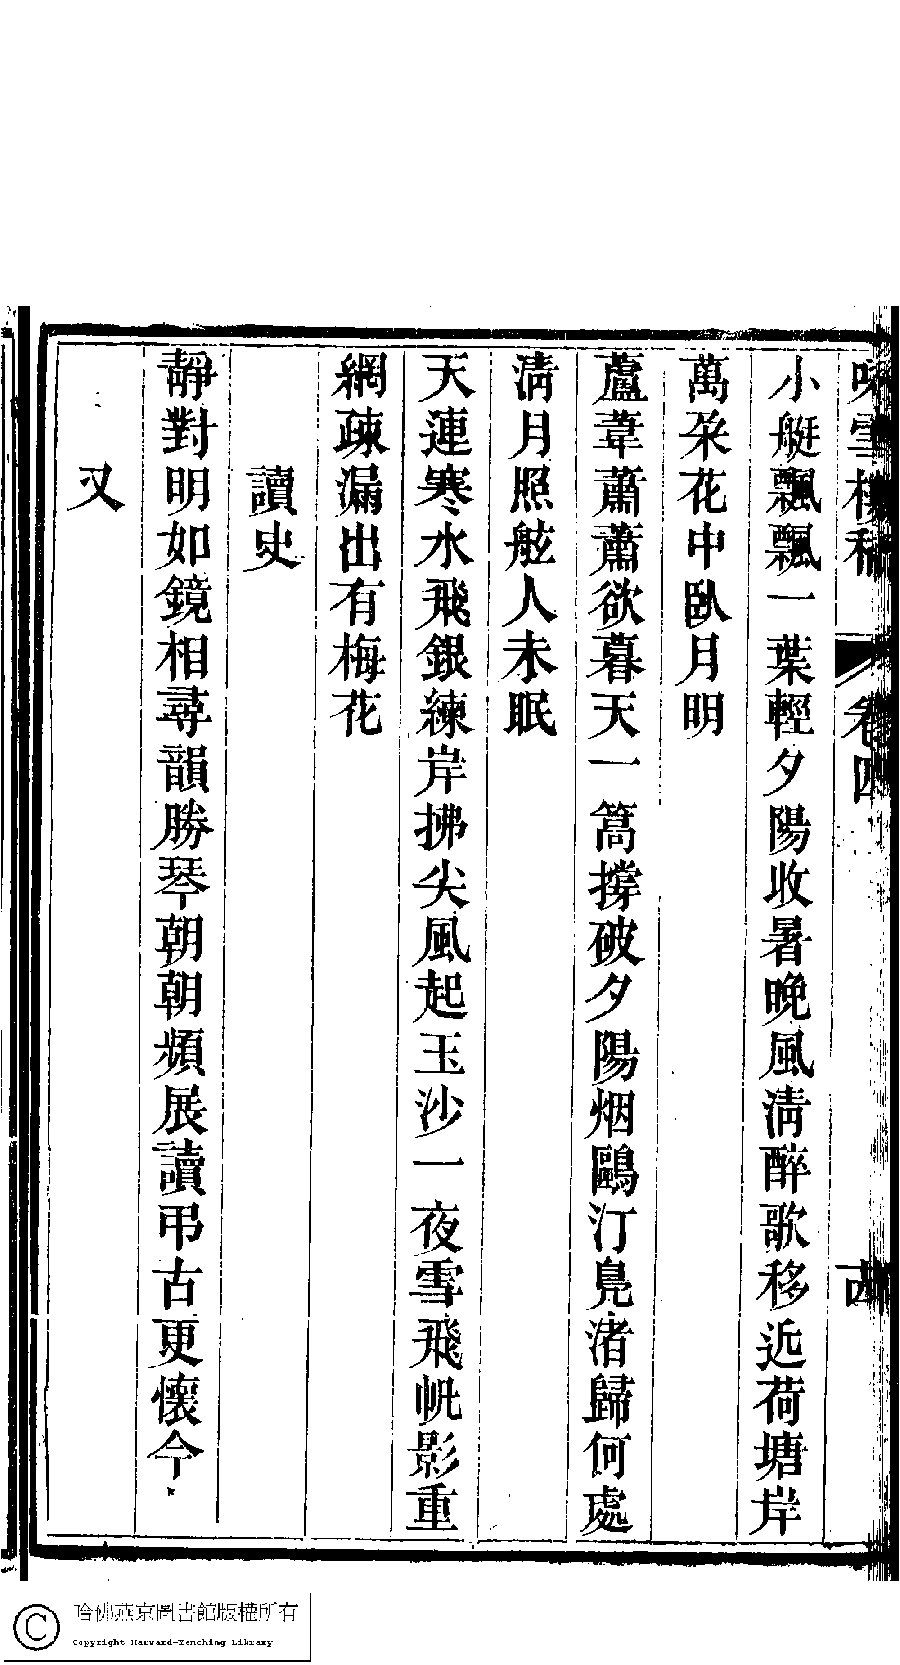 味雪樓稿 卷四 十四
小艇飄飄一葉輕夕陽收暑晚風淸醉歌移近荷塘岸
萬朶花中臥月明
蘆葦蕭蕭欲暮天一篙撐破夕陽烟鷗汀鳧渚歸何處
淸月照舷人未眠
天連寒水飛銀練岸拂尖風起玉沙一夜雪飛帆影重
網疎漏出有梅花
讀史
靜對明如鏡相尋韻勝琴朝朝頻展讀弔古更懷今
又
哈佛燕京圖書館版權所有
Copyright Harvard-Yenching Library